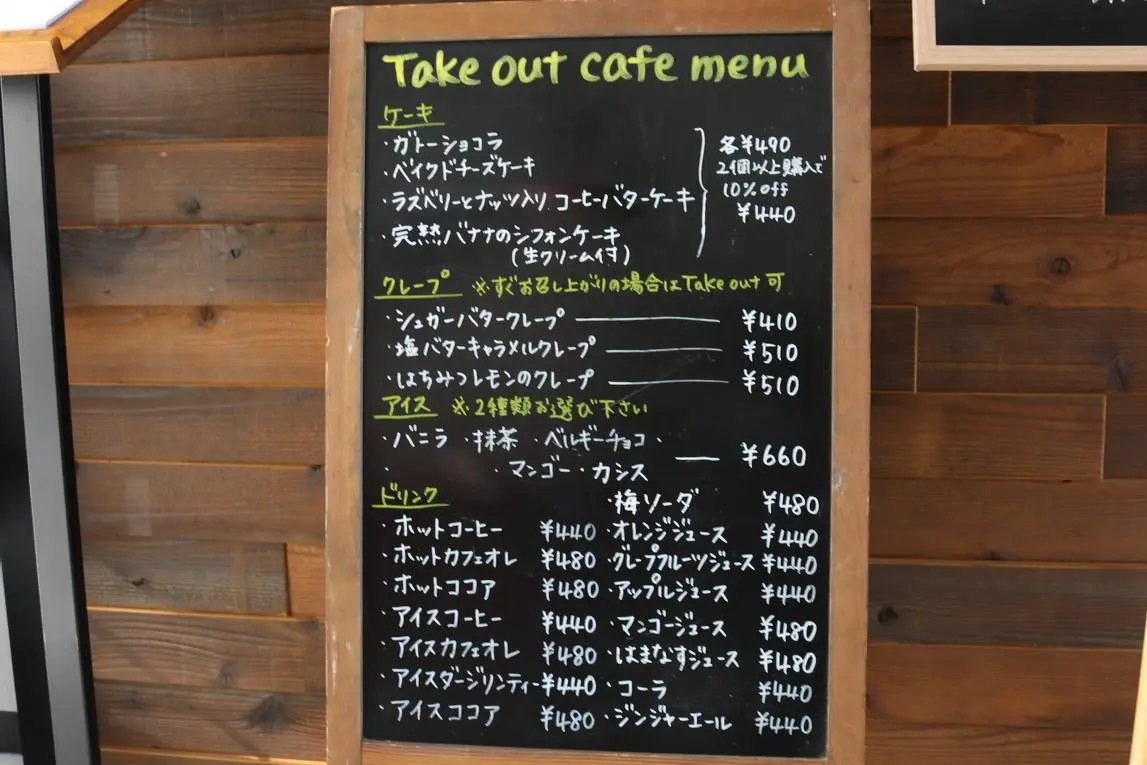 Take out cafe menu
ケーキ
・ガトーショコラ
・ベイクドチーズケーキ
・ラズベリーとナッツ入り コーヒーバターケーキ
・完熟バナナのシフォンケーキ
(生クリーム付)
各¥490
2個以上購入で
10%off
¥440
クレープ ※すぐお召し上がりの場合はTake out可
・シュガーバタークレープ ¥410
・塩バターキャラメルクレープ ¥510
・はちみつレモンのクレープ ¥510
アイス ※2種類お選び下さい
・バニラ ・抹茶 ・ベルギーチョコ・
・ ・マンゴー ・カシス
¥660
ドリンク
・ホットコーヒー ¥440
・ホットカフェオレ ¥480
・ホットココア ¥480
・アイスコーヒー ¥440
・アイスカフェオレ ¥480
・アイスダージリンティー ¥440
・アイスココア ¥480
・梅ソーダ ¥480
・オレンジジュース ¥440
・グレープフルーツジュース ¥440
・アップルジュース ¥440
・マンゴージュース ¥480
・はまなすジュース ¥480
・コーラ ¥440
・ジンジャーエール ¥440